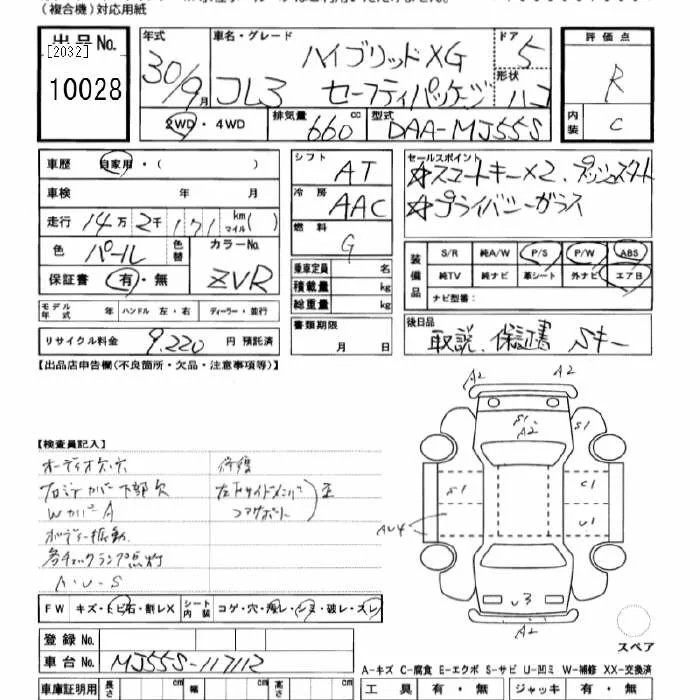 (複合機)対応用紙
出品No. [2032]
10028
年式 30/9月
車名・グレード ハイブリッドXG
セーフティパッケージ
ドア 5
形状 ハコ
評価点 R
内装 C
2WD・4WD
排気量 660 cc
型式 DAA-MJ55S
車歴 自家用・( )
車検 年 月
走行 14万2千171 km マイル( )
色 パール 色替 カラーNo. ZVR
保証書 有・無
モデル年式 年 ハンドル 左・右 ディーラー・並行
リサイクル料金 9,220 円 預託済
シフト AT
冷房 AAC
燃料 G
乗車定員 名
積載量 kg
総重量 kg
書類期限 月 日
セールスポイント
☆スマートキー×2、プッシュスタート
☆プライバシーガラス
装備品 S/R 純A/W P/S P/W ABS
純TV 純ナビ 革シート 外ナビ エアB
ナビ型番:
後日品
取説、保証書 Sキー
【出品店申告欄(不良箇所・欠品・注意事項等)】
A2 A2
S1
A2
S1
【検査員記入】
下部欠
WカバーA
ボディー振動
各チェックランプ点灯
A・U・S
左
S1
C1
U1
AU4
U3
A2
FW キズ・ヒビ石・割レX シート内装 コゲ・穴・汚レ・シミ・破レ・スレ
登録No.
車台No. MJ55S-117112
スペア
A-キズ C-腐食 E-エクボ S-サビ U-凹ミ W-補修 XX-交換済
車庫証明用 長さ cm 幅 cm 高さ cm
工具 有・無 ジャッキ 有・無